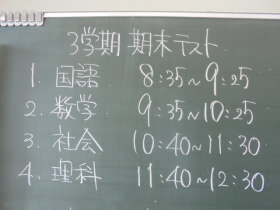 3学期 期末テスト
1. 国語 8:35~9:25
2. 数学 9:35~10:25
3. 社会 10:40~11:30
4. 理科 11:40~12:30